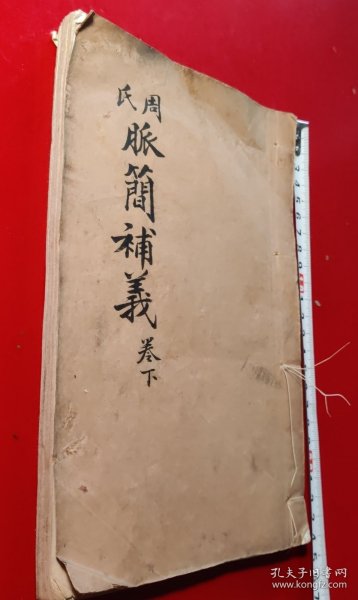 周氏
脈簡補義
卷下
孔夫子旧书网
www.kongfz.com